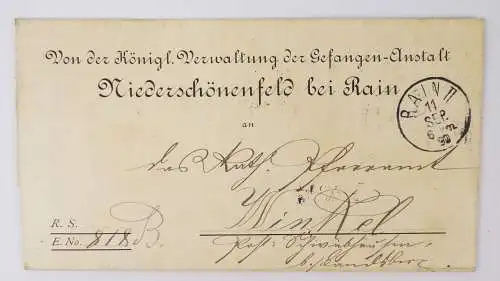 Von der Königl. Verwaltung der Gefangen-Anstalt
Niederschönenfeld bei Rain
RAIN II
11
SEP.
an
das Kath. Pfarramt
Winkel
R. S.
E. No. 818 B.
Post: Schwabhausen
b. Landsberg